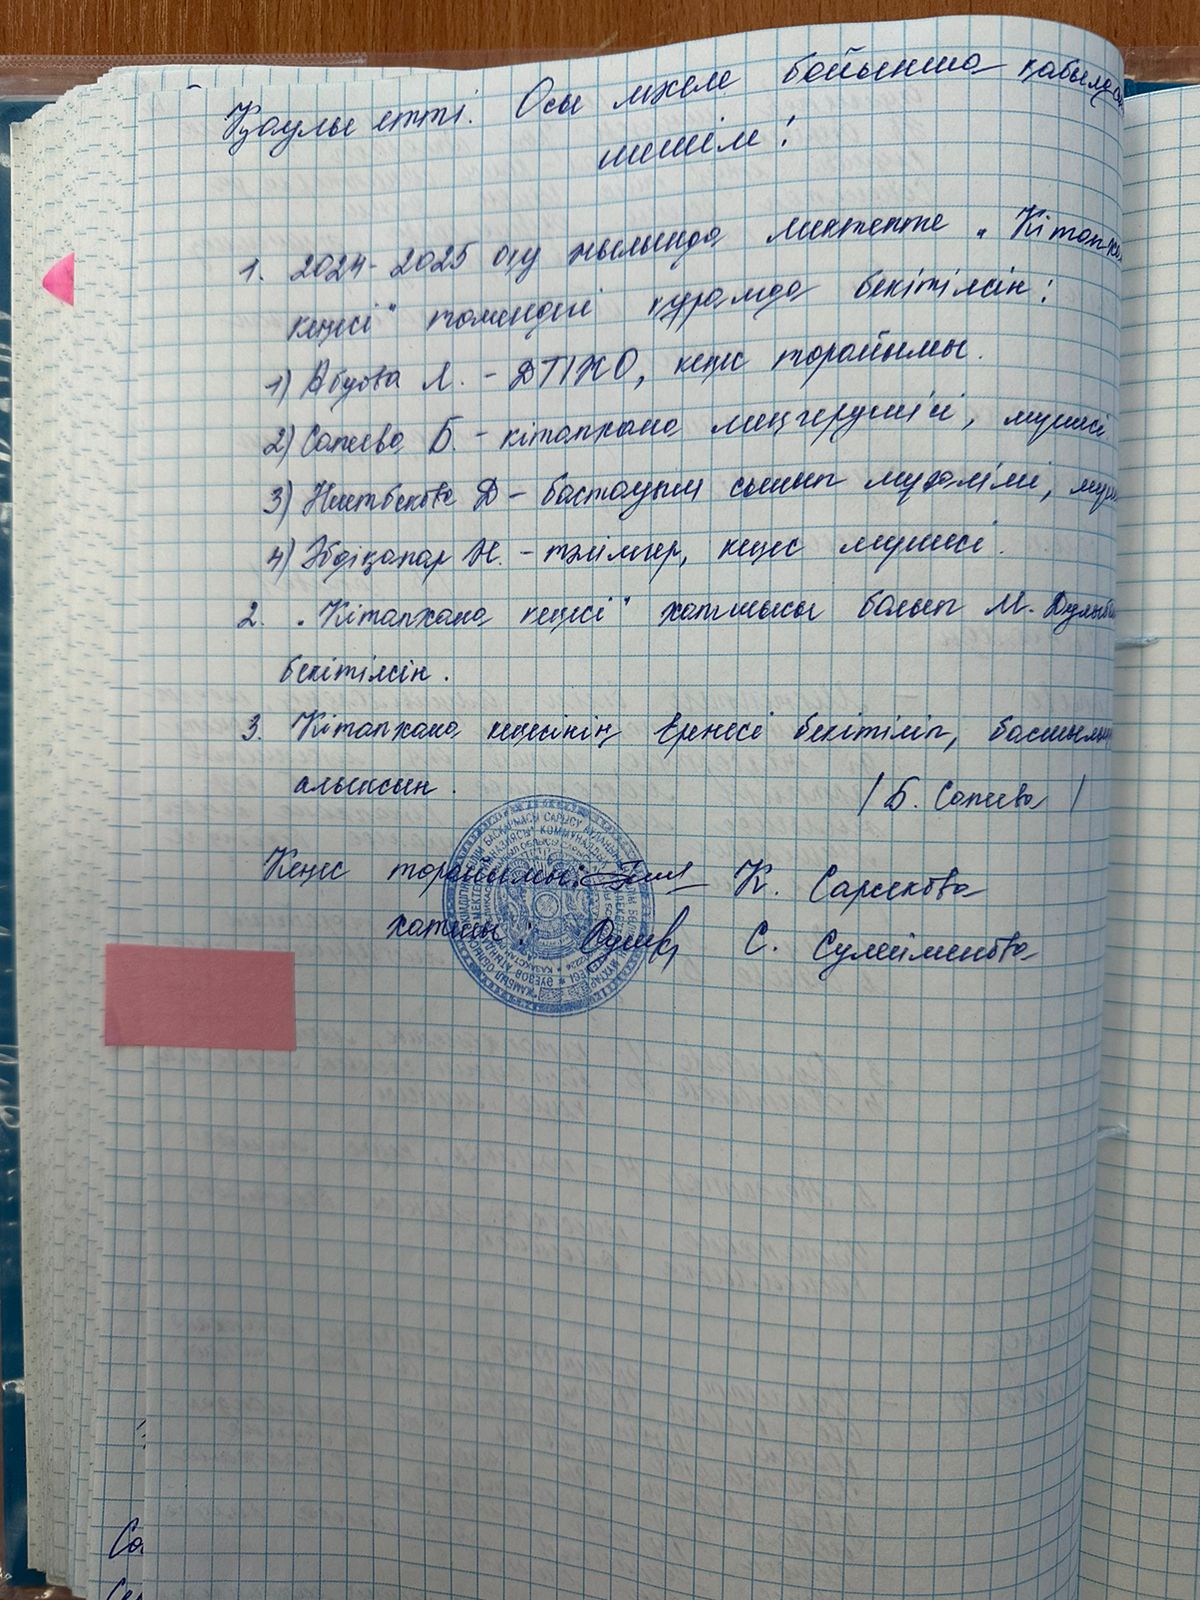 Қаулы етті. Осы мәселе бойынша қабылдан
шешім:
1. 2024-2025 оқу жылында мектепте "Кітапха
кеңесі" төмендегі құрамда бекітілсін:
1) Абуова Л. - ДТІЖО, кеңес төрайымы.
2) Сапеева Б. - кітапхана меңгерушісі, мүшесі.
3) Ниетбекова Д - бастауыш сынып мұғалімі, мүш
4) Әбдіқапар Н. - тәлімгер, кеңес мүшесі.
2. "Кітапхана кеңесі" хатшысы болып М.
бекітілсін.
3. Кітапхана кеңесінің ережесі бекітіліп, басшылық
алынсын.
/ Б. Сапеева /
Кеңес төрайымы: К. Сарсекова
хатшы: С. Сулейменова